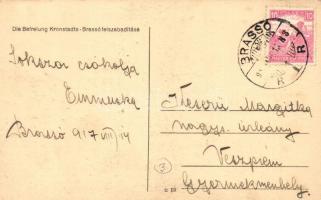 Die Befreiung Kronstadts - Brassó felszabadítása
BRASSÓ
10
Sokszor csókolja
Emmuska
Brassó 917 VIII/14
Keserü Margitka
nagys. úrleány
Veszprém
Gyermekmenhely.
3